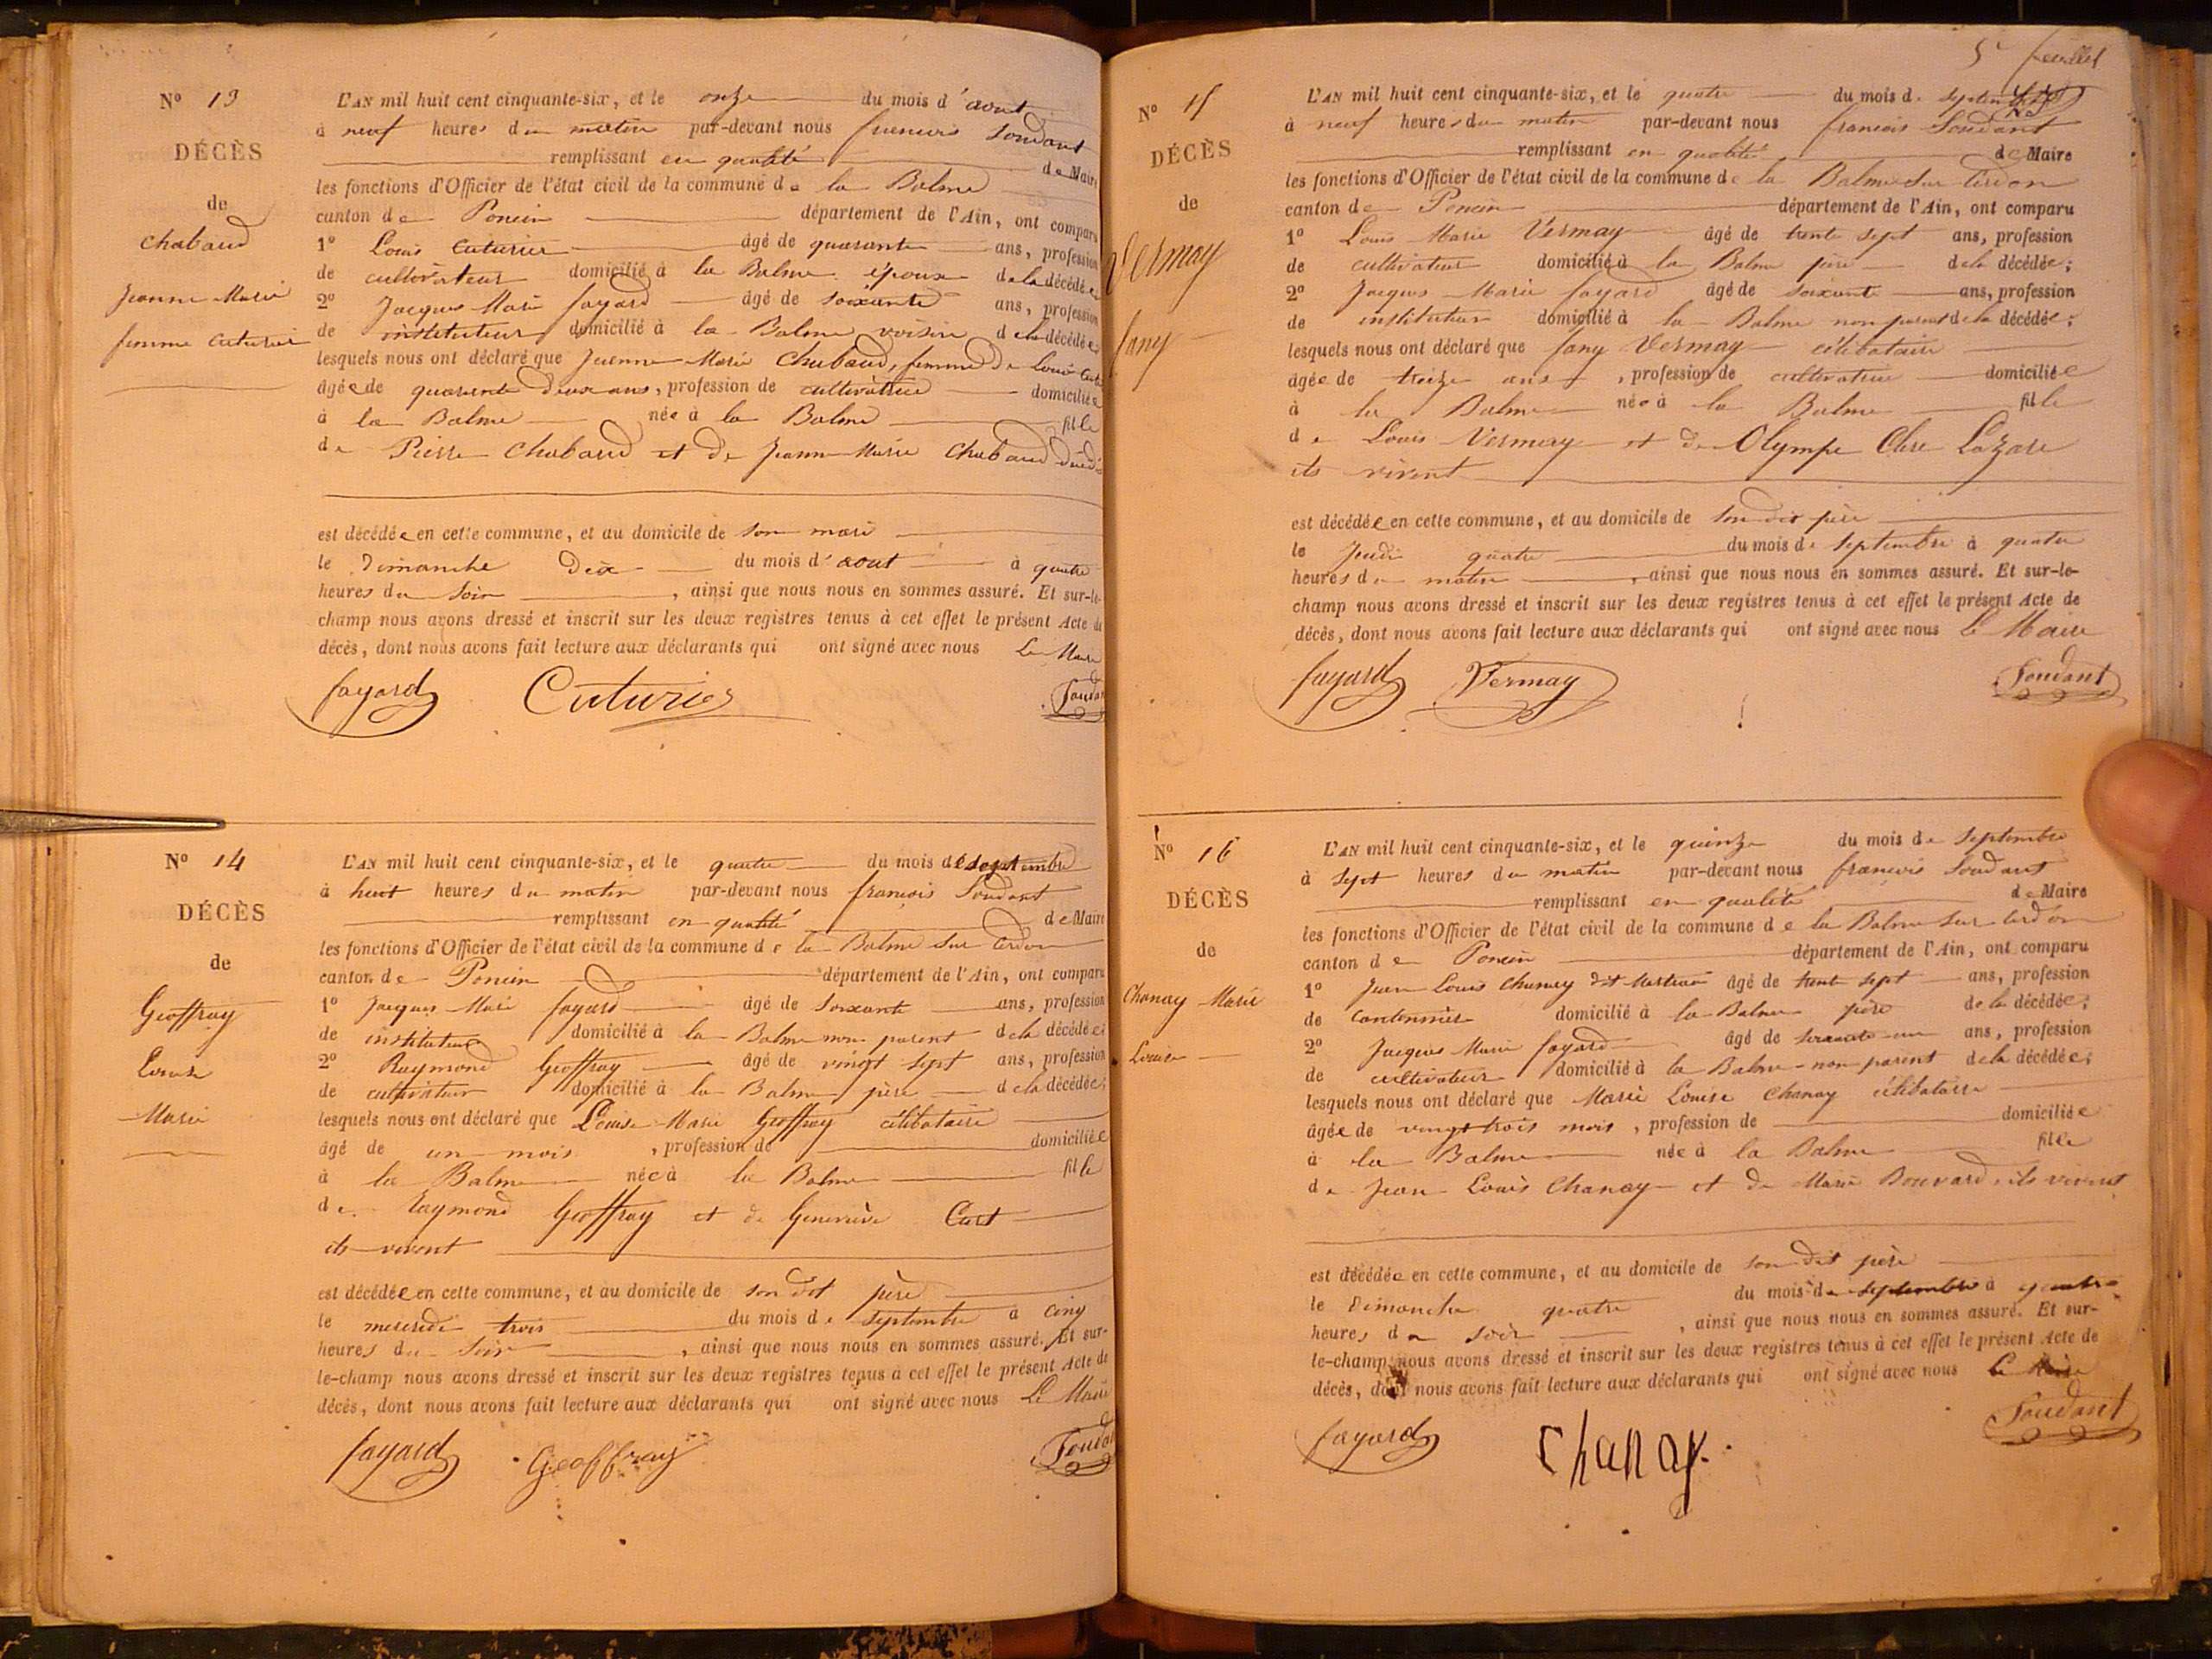 N° 13
DÉCÈS
de
Chabaud
Jeanne Marie
femme Cuturier
L'AN mil huit cent cinquante-six, et le onze du mois d'aout
à neuf heures du matin par-devant nous francois Soudant
remplissant en qualité de Maire
les fonctions d'Officier de l'état civil de la commune de la Balme
canton de Poncin département de l'Ain, ont comparu
1° Louis Cuturier âgé de quarante ans, profession
de cultivateur domicilié à la Balme époux de la décédée
2° Jacques Marie fayard âgé de soixante ans, profession
de instituteur domicilié à la Balme voisin de la décédée
lesquels nous ont déclaré que Jeanne Marie Chabaud, femme de Louis
âgée de quarante deux ans, profession de cultivatrice domiciliée
à la Balme née à la Balme fille
de Pierre Chabaud et de Jeanne Marie Chabaud
est décédée en cette commune, et au domicile de son mari
le Dimanche dix du mois d'aout à quatre
heures du soir, ainsi que nous nous en sommes assuré. Et sur-le-
champ nous avons dressé et inscrit sur les deux registres tenus à cet effet le présent Acte de
décès, dont nous avons fait lecture aux déclarants qui ont signé avec nous Le Maire
fayard Cuturier Soudant
N° 14
DÉCÈS
de
Geoffray
Louise
Marie
L'AN mil huit cent cinquante-six, et le quatre du mois de septembre
à huit heures du matin par-devant nous francois Soudant
remplissant en qualité de Maire
les fonctions d'Officier de l'état civil de la commune de la Balme sur Cerdon
canton de Poncin département de l'Ain, ont comparu
1° Jacques Marie fayard âgé de soixante ans, profession
de instituteur domicilié à la Balme non parent de la décédée;
2° Raymond Geoffray âgé de vingt sept ans, profession
de cultivateur domicilié à la Balme père de la décédée;
lesquels nous ont déclaré que Louise Marie Geoffray célibataire
âgé de un mois, profession de domiciliée
à la Balme née à la Balme fille
de Raymond Geoffray et de Geneviève Curt
ils vivent
est décédée en cette commune, et au domicile de son dit père
le mercredi trois du mois de septembre à cinq
heures du soir, ainsi que nous nous en sommes assuré. Et sur-
le-champ nous avons dressé et inscrit sur les deux registres tenus à cet effet le présent Acte de
décès, dont nous avons fait lecture aux déclarants qui ont signé avec nous Le Maire
fayard Geoffray Soudant
5e feuillet
N° 15
DÉCÈS
de
Vermay
fany
L'AN mil huit cent cinquante-six, et le quatre du mois de septembre
à neuf heures du matin par-devant nous francois Soudant
remplissant en qualité de Maire
les fonctions d'Officier de l'état civil de la commune de la Balme Sur Cerdon
canton de Poncin département de l'Ain, ont comparu
1° Louis Marie Vermay âgé de trente sept ans, profession
de cultivateur domicilié à la Balme père de la décédée;
2° Jacques Marie fayard âgé de soixante ans, profession
de instituteur domicilié à la Balme non parent de la décédée;
lesquels nous ont déclaré que fany Vermay célibataire
âgée de treize ans, profession de cultivatrice domiciliée
à la Balme née à la Balme fille
de Louis Vermay et de Olympe Clere Lazare
ils vivent
est décédée en cette commune, et au domicile de son dit père
le Jeudi quatre du mois de septembre à quatre
heures du matin, ainsi que nous nous en sommes assuré. Et sur-le-
champ nous avons dressé et inscrit sur les deux registres tenus à cet effet le présent Acte de
décès, dont nous avons fait lecture aux déclarants qui ont signé avec nous Le Maire
fayard Vermay Soudant
N° 16
DÉCÈS
de
Chanay Marie
Louise
L'AN mil huit cent cinquante-six, et le quinze du mois de septembre
à sept heures du matin par-devant nous francois Soudant
remplissant en qualité de Maire
les fonctions d'Officier de l'état civil de la commune de la Balme sur Cerdon
canton de Poncin département de l'Ain, ont comparu
1° Jean Louis Chanay dit âgé de trente sept ans, profession
de cantonnier domicilié à la Balme père de la décédée;
2° Jacques Marie fayard âgé de soixante un ans, profession
de cultivateur domicilié à la Balme non parent de la décédée;
lesquels nous ont déclaré que Marie Louise Chanay célibataire
âgée de vingt trois mois, profession de domiciliée
à la Balme née à la Balme fille
de Jean Louis Chanay et de Marie Bouvard, ils vivent
est décédée en cette commune, et au domicile de son dit père
le Dimanche quatre du mois de septembre à quatre
heures du soir, ainsi que nous nous en sommes assuré. Et sur-
le-champ nous avons dressé et inscrit sur les deux registres tenus à cet effet le présent Acte de
décès, dont nous avons fait lecture aux déclarants qui ont signé avec nous Le Maire
fayard Chanay Soudant